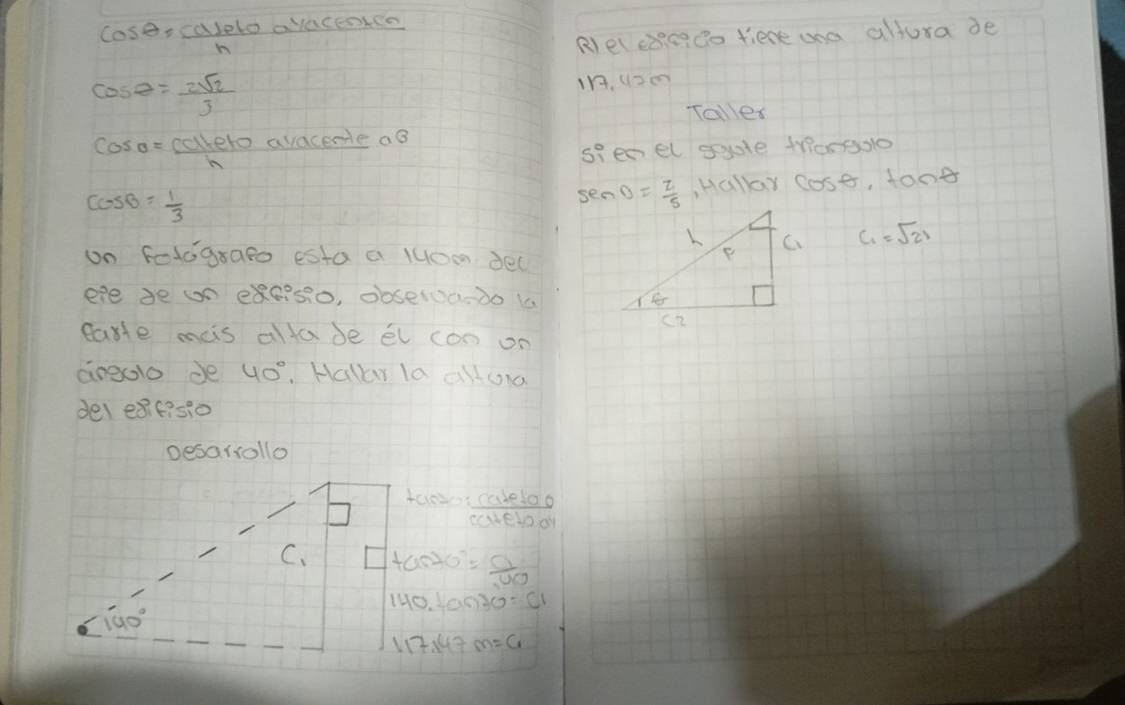 cosθ = cateto ayacente
h
cosθ = 2√2
3
cosθ = cateto ayacente aB
h
cosθ = 1/3
un fotógrafo esta a 140m del
eje de un edificio, observando la
parte más alta de él con un
ángulo de 40°. Hallar la altura
del edifisio
Desarrollo
cateto o
cateto ay
C1
140°
140.tan40 = C1
117,147 m = C1
R) el edificio tiene una altura de
117,47m
Taller
si en el sgute triangulo
senθ = 2/5, Hallar cosθ, tanθ
h
C1
C1 = √21
θ
C2